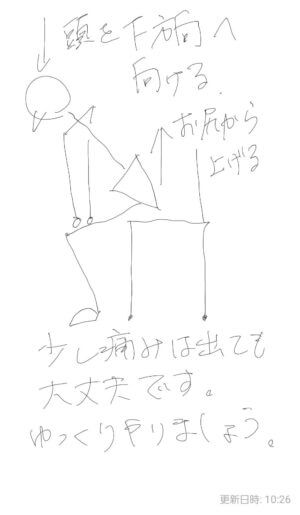 頭を下方向へ
向ける.
お尻から
上げる
少し痛みは出ても
大丈夫です。
ゆっくりやりましょう。
更新日時: 10:26